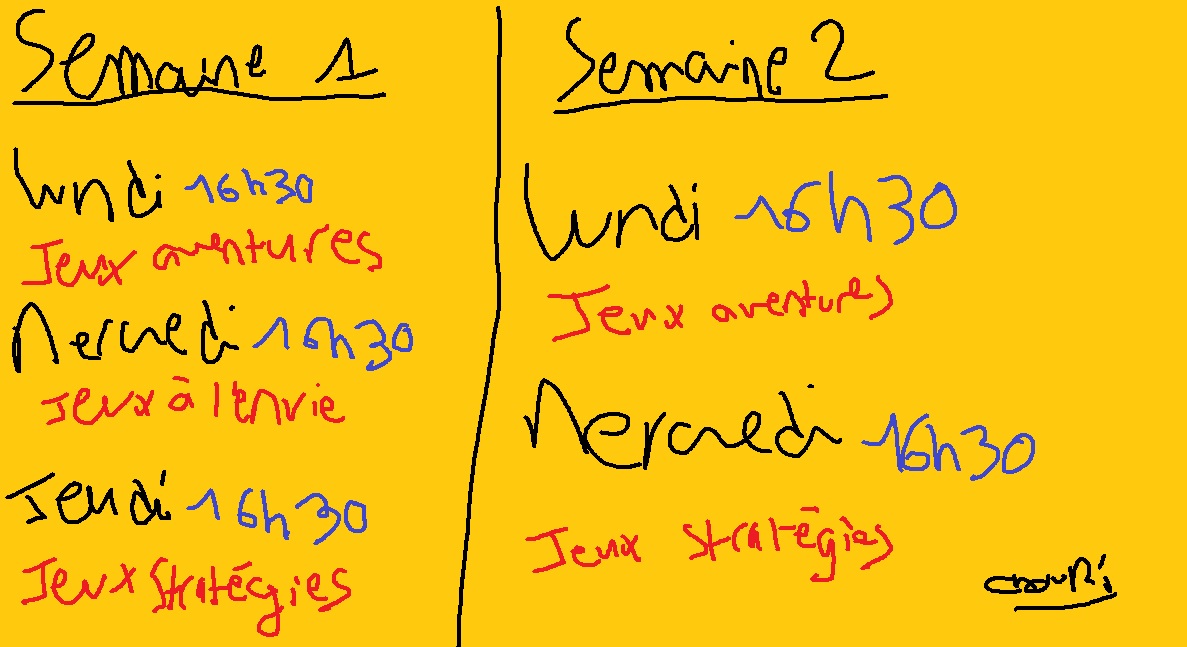 Semaine 1
lundi 16h30
Jeux aventures
Mercredi 16h30
Jeux à l'envie
Jeudi 16h30
Jeux Stratégies
Semaine 2
lundi 16h30
Jeux aventures
Mercredi 16h30
Jeux stratégies